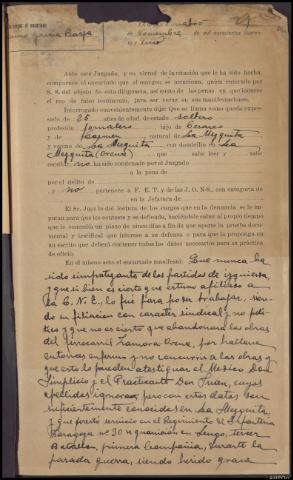 Noviembre de mil novecientos cuaren-
ta y uno
Ante este Juzgado, y en virtud de la citación que le ha sido hecha,
comparece el encartado que al margen se menciona, quien enterado por
S. S. del objeto de esta diligencia, así como de las penas en que incurre
el reo de falso testimonio, jura ser veraz en sus manifestaciones.
Interrogado convenientemente dijo: Que se llama como queda expre-
sado de 25 años de edad, de estado soltero
profesión jornalero hijo de
y de natural de La Mezquita
y vecino de La Mezquita con domicilio en La
Mezquita (Orense) que sabe leer y
escribir; no ha sido condenado por el Juzgado
a la pena de
por el delito de
y no pertenece a F. E. T. y de las J. O. N-S., con categoría de
en la Jefatura de
El Sr. Juez le dió lectura de los cargos que en la denuncia se le im-
putan para que los conteste y se defienda, haciéndole saber al propio tiempo
que le concedía un plazo de cinco días a fin de que aporte la prueba docu-
mental y testifical que interese a su defensa o para que la proponga en
un escrito que deberá contener todos los datos necesarios para su práctica
de oficio.
En el mismo acto el encartado manifestó: Que nunca ha
sido simpatizante de los partidos de izquierda,
y que si bien es cierto que estuvo afiliado a
la C.N.T., lo fué para poder trabajar, sien-
do su filiación con caracter sindical y no polí-
tico y que no es cierto que abandonara las obras
del ferrocarril Zamora Orense, por hallarse
entonces enfermo y no concurrir a las obras y
que esto lo pueden atestiguar el Médico Don
Simplicio y el Practicante Don Juan, cuyos
apellidos ignora, pero con estos datos son
suficientemente conocidos en La Mezquita,
y que prestó servicio en el Regimiento de Infantería
Zaragoza nº 30 de guarnición en Lugo, tercer
Batallón, primera Compañía, durante la
pasada guerra, siendo herido grave